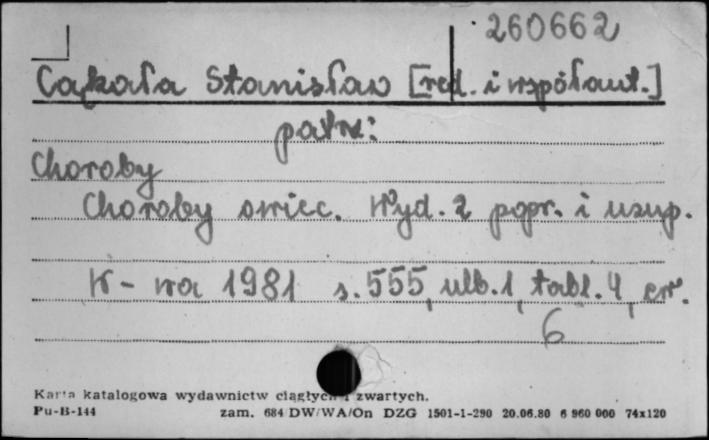 260662
Cąkała Stanisław [red. i współaut.]
patrz:
Choroby
Choroby owiec. Wyd. 2 popr. i uzup.
W-wa 1981 s. 555, ulb. 1, tabl. 4, err.
6
Karta katalogowa wydawnictw ciągłych i zwartych.
Pu-B-144 zam. 684 DW/WA/On DZG 1501-1-290 20.06.80 6 960 000 74x120